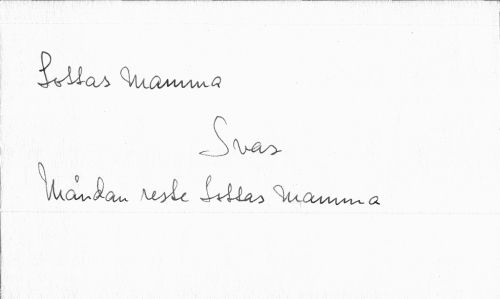 Lottas Mamma
Svar
Måndan reste Lottas Mamma